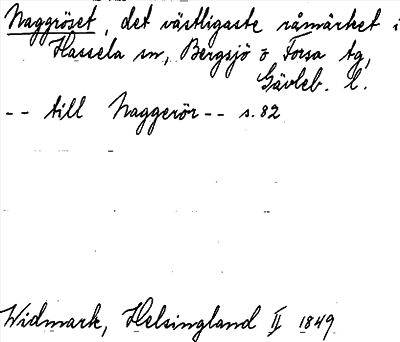 Naggröset, det västligaste råmärket i
Hassela sn, Bergsjö o Forsa tg,
Gävleb. l.
-- till Naggerör -- s. 82
Widmark, Helsingland II 1849